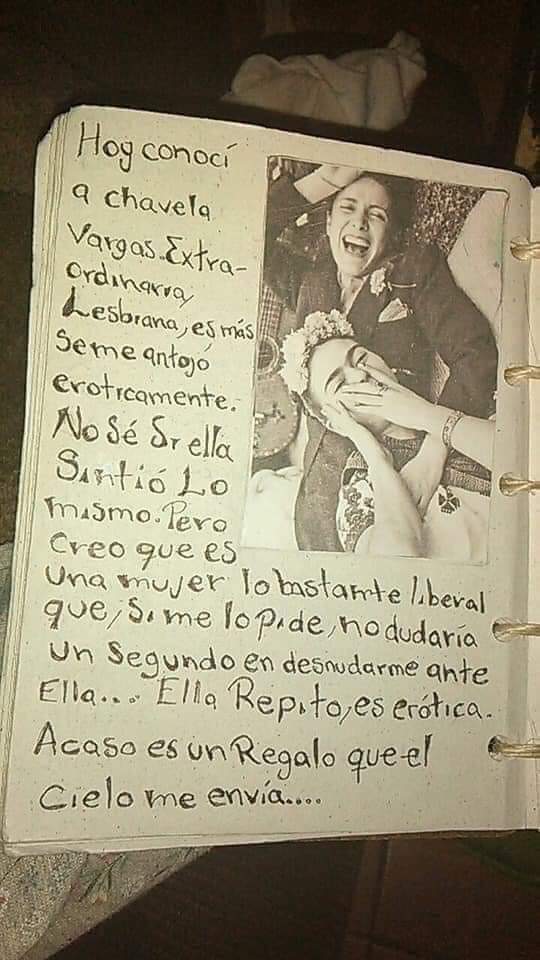 Hoy conocí
a chavela
Vargas. Extra-
ordinaria,
Lesbiana, es más
Se me antojó
eroticamente.
No Sé Si ella
Sintió Lo
mismo. Pero
Creo que es
una mujer lo bastante liberal
que, Si me lo pide, no dudaría
un Segundo en desnudarme ante
Ella.... Ella Repito, es erótica.
Acaso es un Regalo que el
Cielo me envía....